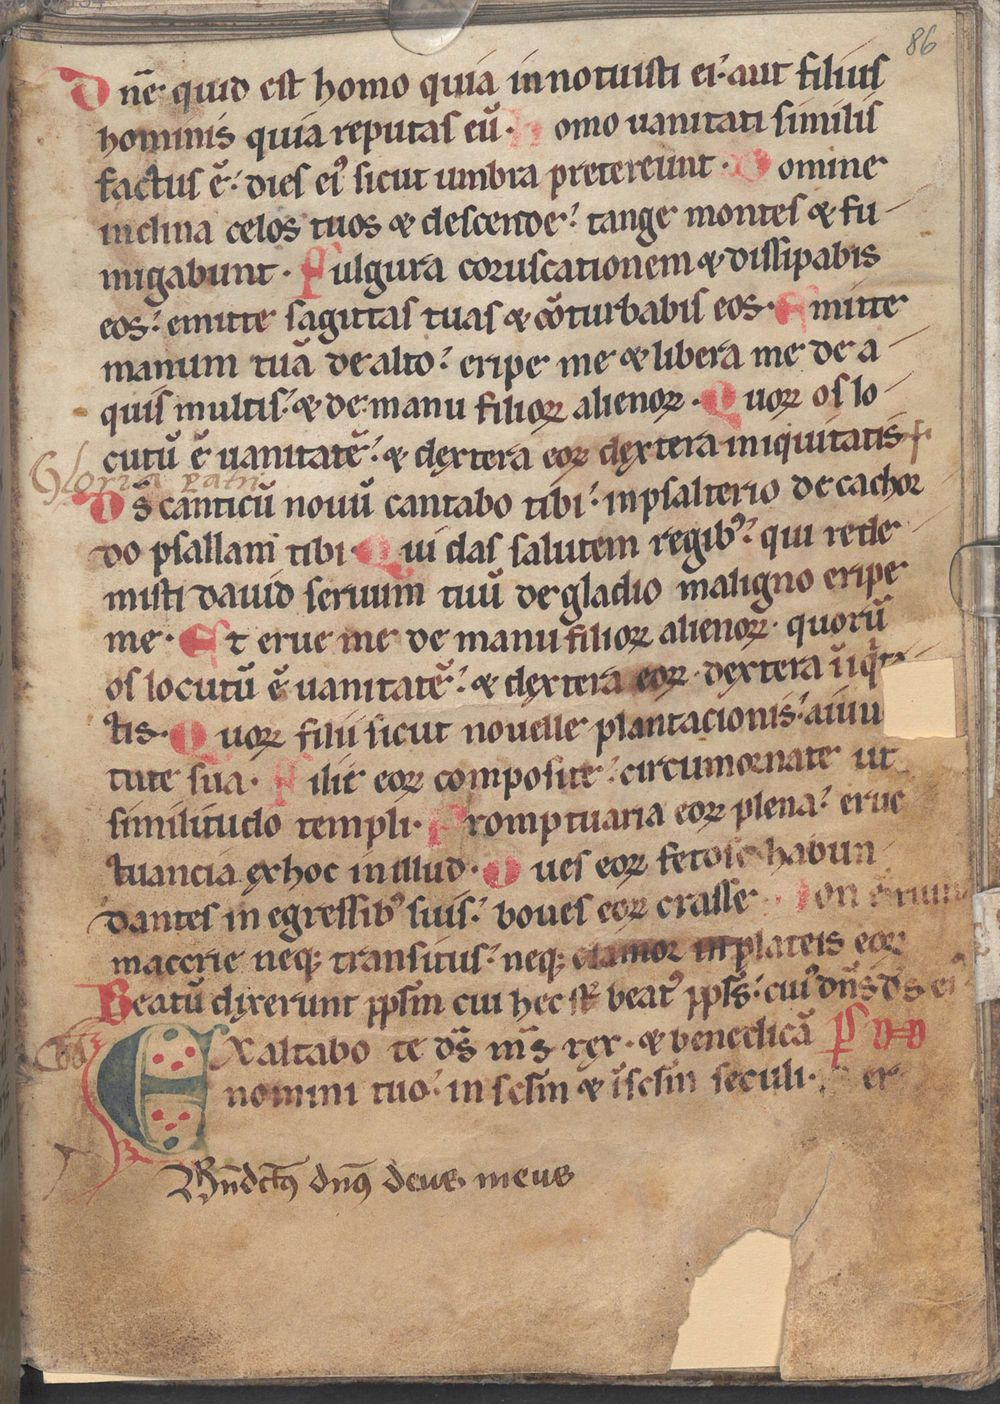 86
Dn̄e quid est homo quia innotuisti ei· aut filius
hominis quia reputas eū· homo uanitati similis
factus ē· dies eiꝰ sicut umbra pretereunt· Domine
inclina celos tuos & descende· tange montes & fu-
migabunt· Fulgura coruscationem & dissipabis
eos· emitte sagittas tuas & cōturbabis eos· Emitte
manum tuā de alto· eripe me & libera me de a-
quis multis· & de manu filioꝝ alienoꝝ· Quoꝝ os lo-
cutū ē uanitatē· & dextera eoꝝ dextera iniquitatis
Gloria patri
Ds̄ canticū nouū cantabo tibi· in psalterio decachor
do psallam tibi· Qui das salutem regibꝰ· qui rede-
misti dauid seruum tuū de gladio maligno eripe
me· Et erue me de manu filioꝝ alienoꝝ· quorū
os locutū ē uanitatē· & dextera eoꝝ· dextera
tis· Quoꝝ filii sicut nouelle plantacionis· a iuu
tute sua· Filie eoꝝ composite· circumornate ut
similitudo templi· Promptuaria eoꝝ plena· eruc
tuancia ex hoc in illud· Oues eoꝝ fetose habun-
dantes in egressibꝰ suis· boues eoꝝ crasse· Non
macerie neqꝫ transitus· neqꝫ clamor in plateis eoꝝ
Beatū dixerunt ppl̄m cui hec st̄ beatꝰ ppl̄s· cuiꝰ dn̄s ds̄ eiꝰ
Exaltabo te ds̄ ms̄ rex· & benedicā
nomini tuo· in sclm̄ & ī sclm̄ seculi· er
Bn̄dctꝰ dn̄s deus meus